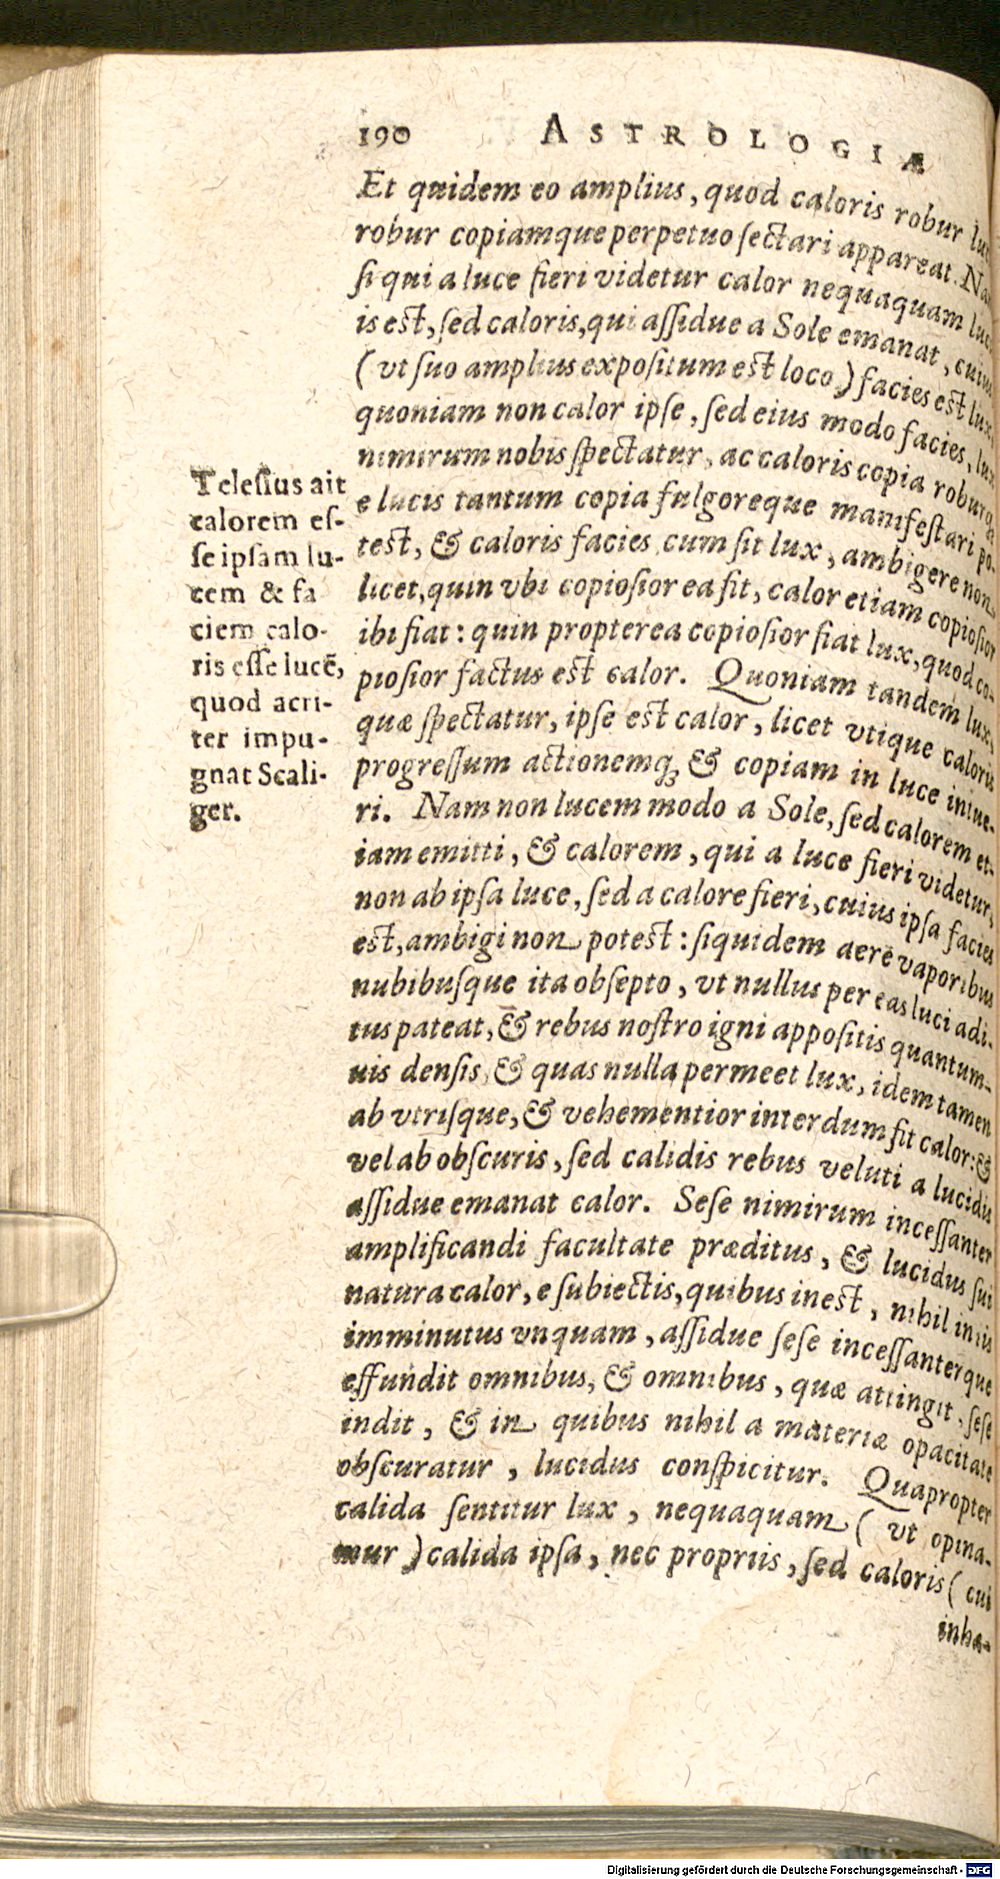 190 ASTROLOGIÆ
Et quidem eo amplius, quod caloris robur
robur copiamque perpetuo ſectari appareat.
ſi qui a luce fieri videtur calor nequaquam
is est, ſed caloris, qui aſſidue a Sole emanat,
(vt ſuo amplius expoſitum est loco) facies est lux,
quoniam non calor ipſe, ſed eius modo facies, lux
nimirum nobis ſpectatur, ac caloris copia
e lucis tantum copia fulgoreque manifeſtari po-
test, & caloris facies cum ſit lux, ambigere non
licet, quin vbi copioſior ea ſit, calor etiam copioſior
ibi fiat: quin propterea copioſior fiat lux, quod co-
pioſior factus est calor. Quoniam tandem lux,
quæ ſpectatur, ipſe est calor, licet vtique caloris
progreſſum actionemq; & copiam in luce intue-
ri. Nam non lucem modo a Sole, ſed calorem et-
iam emitti, & calorem, qui a luce fieri videtur,
non ab ipſa luce, ſed a calore fieri, cuius ipſa facies
est, ambigi non potest: ſiquidem aerē vaporibus
nubibuſque ita obſepto, vt nullus per eas luci adi-
tus pateat, & rebus noſtro igni appoſitis quantum-
uis denſis, & quas nulla permeet lux, idem tamen
ab vtriſque, & vehementior interdum fit calor: &
vel ab obſcuris, ſed calidis rebus veluti a lucidis
aſſidue emanat calor. Seſe nimirum inceſſanter
amplificandi facultate præditus, & lucidus ſui
natura calor, e ſubiectis, quibus inest, nihil in iis
imminutus vnquam, aſſidue ſeſe inceſſanterque
effundit omnibus, & omnibus, quæ attingit, ſeſe
indit, & in quibus nihil a materiæ opacitate
obſcuratur, lucidus conſpicitur. Quapropter
calida ſentitur lux, nequaquam (vt opina-
mur) calida ipſa, nec propriis, ſed caloris (cui
inhæ-
Teleſius ait
calorem eſ-
ſe ipſam lu-
cem & fa
ciem calo-
ris eſſe lucē,
quod acri-
ter impu-
gnat Scali-
ger.
Digitalisierung gefördert durch die Deutsche Forschungsgemeinschaft - DFG